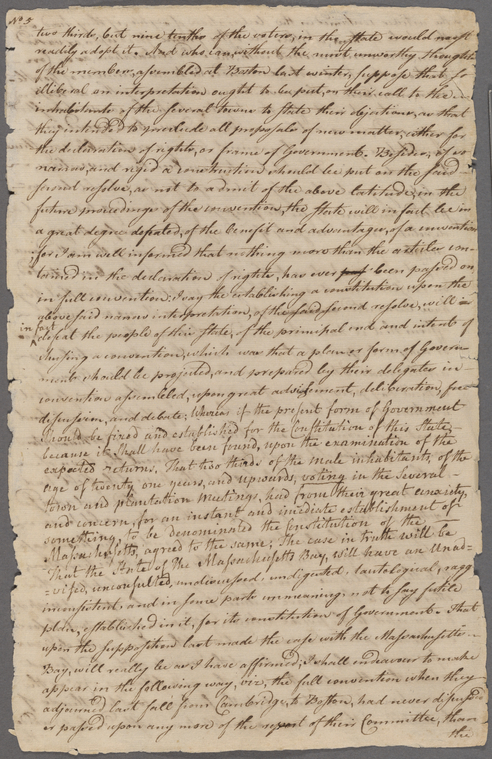 No 3
two thirds, but nine tenths of the voters, in the State would most
readily adopt it. And who can, without the most unworthy thoughts
of the members, assembled at Boston last winter, suppose that so
illiberal an interpretation ought to be put, on their call to the
inhabitants of the several towns to state their objections, as that
they intended to preclude all proposals of new matter, either for
the declaration of rights, or frame of Government. Besides, if so
narrow, and rigid a construction should be put on the said
second resolve, as not to admit of the above latitude, in the
future proceedings of the convention, the State will in fact be in
a great degree defeated, of the benefit and advantages, of a convention
for, I am well informed that nothing more than the articles con-
tained in the declaration of rights, has ever been passed on
in full convention. I say the establishing a constitution upon the
above said narrow interpretation, of the said second resolve, will
in fact
defeat the people of this State, of the principal end and intent of
chusing a convention, which was that a plan or form of Govern-
ment should be projected, and prepared by their delegates in
convention assembled, upon great advisement, deliberation, free
discussion, and debate, Whereas if the present form of Government
should be fixed and established for the Constitution of this State,
because it shall have been found, upon the examination of the
expected returns, That two thirds of the male inhabitants, of the
age of twenty one years, and upwards, voting in the several
town and plantation meetings, had from their great anxiety,
and concern, for an instant and imediate establishment of
something, to be denominated the Constitution of the
Massachusetts, agreed to the same; The case in truth will be
That the State of the Massachusetts Bay, will have an unad-
-vised, unconsulted, undiscussed, undigested, tautological,
inconsistent, and in some parts unmeaning, not to say futile
plan, established in it, for its constitution of Government. That
upon the supposition last made the case with the Massachusetts
Bay, will really be as I have affirmed, I shall endeavour to make
appear in the following way, viz, the full convention when they
adjourned last fall from Cambridge, to Boston, had never discussed
or passed upon any more of the report of their Committee, than
the